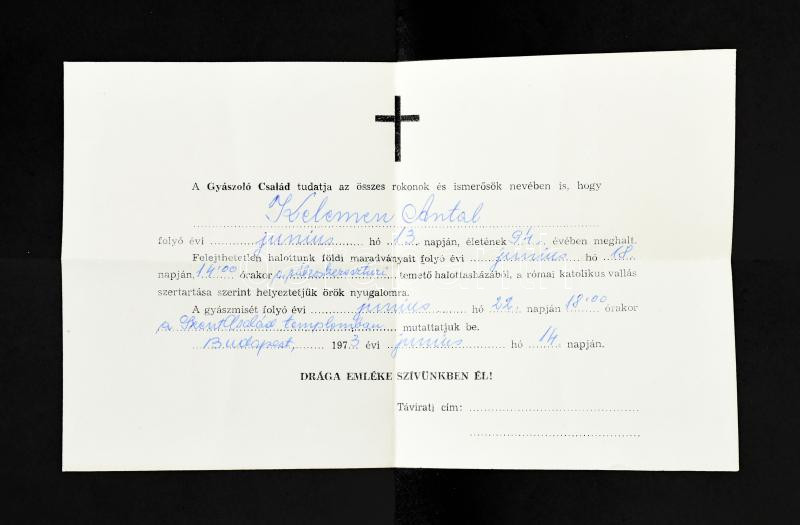 A Gyászoló Család tudatja az összes rokonok és ismerősök nevében is, hogy
Kelemen Antal
folyó évi június hó 13. napján, életének 94. évében meghalt.
Felejthetetlen halottunk földi maradványait folyó évi június hó 18.
napján, 14.00 órakor a rákoskeresztúri temető halottasházából, a római katolikus vallás
szertartása szerint helyeztetjük örök nyugalomra.
A gyászmisét folyó évi június hó 22. napján 18.00 órakor
a Szent Család templomban mutattatjuk be.
Budapest, 1973 évi június hó 14. napján.
DRÁGA EMLÉKE SZÍVÜNKBEN ÉL!
Távirati cím: